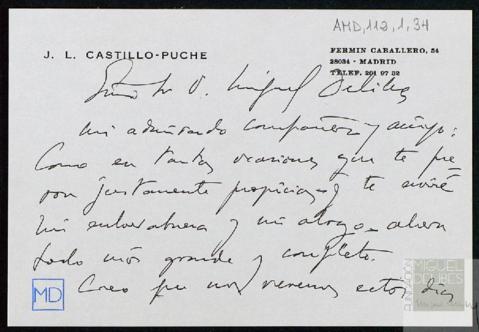 AMD, 112, 1, 34
J. L. CASTILLO-PUCHE
FERMIN CABALLERO, 54
28034 - MADRID
TELEF. 201 97 32
D. Miguel Delibes
Mi admirado compañero y amigo:
Como en tantas ocasiones que te
justamente propicias y te envié
mi enhorabuena y mi abrazo ahora
todo más grande y completo.
Creo que nos veremos estos días
MD
FUNDACIÓN
MIGUEL
DELIBES